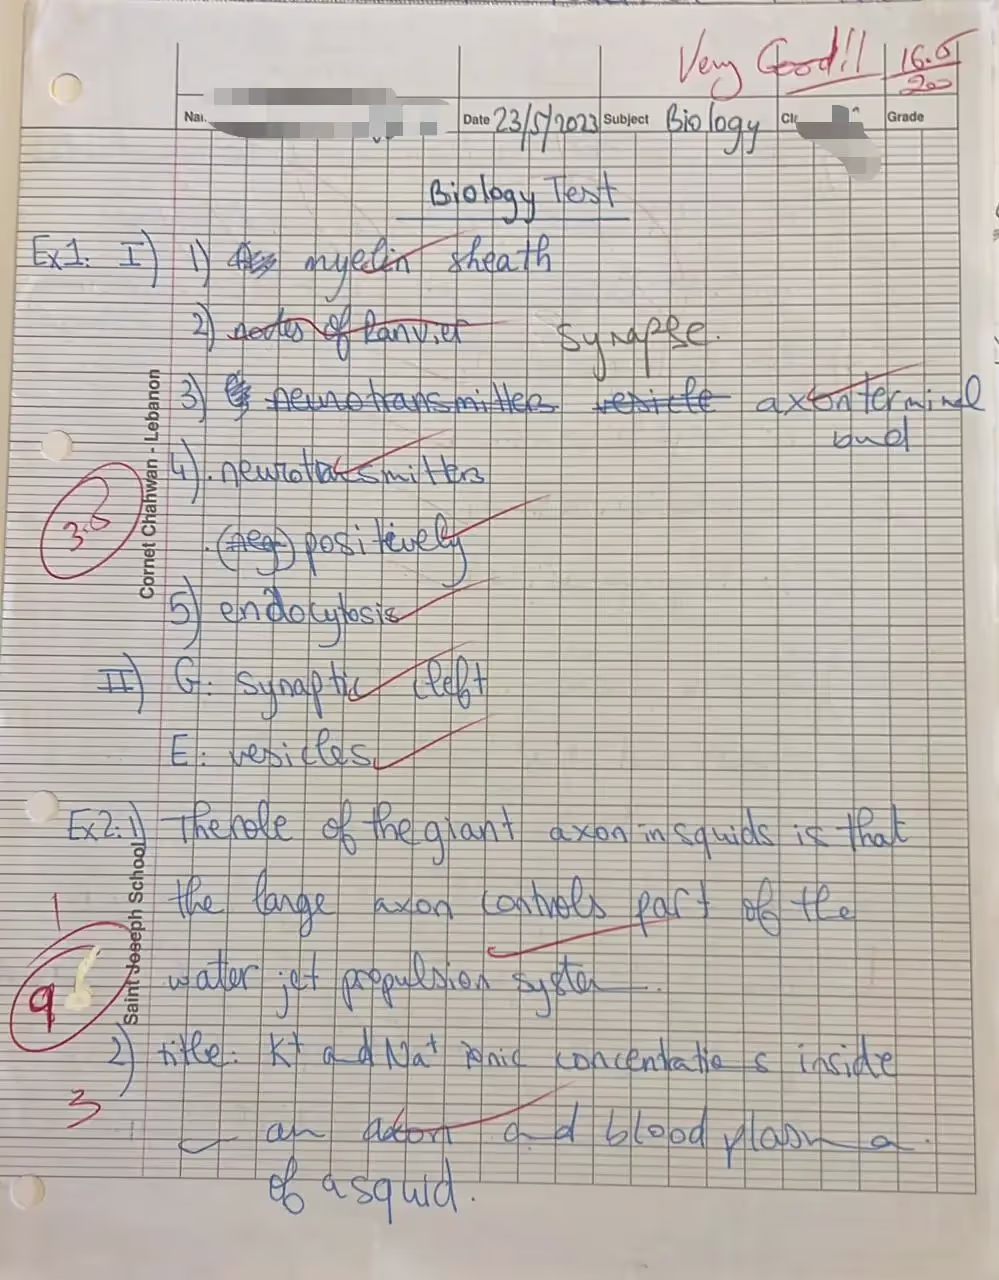 Very Good!! 16.5
20
Date 23/5/2023 Subject Biology Grade
Biology Test
Ex1: I) 1) myelin sheath
2) nodes of Ranvier synapse.
3) neurotransmitters vesicle axon terminal
bud
4). neurotasmitters
3.5
. (neg) positively
5) endocytosis
II) G: synaptic cleft
E: vesicles
Ex2: 1) The role of the giant axon in squids is that
the large axon controls part of the
1
water jet propulsion system.
9
2) title: K+ and Na+ ionic concentrations inside
3
an axon and blood plasma
of a squid.
Cornet Chahwan - Lebanon
Saint Joseph School